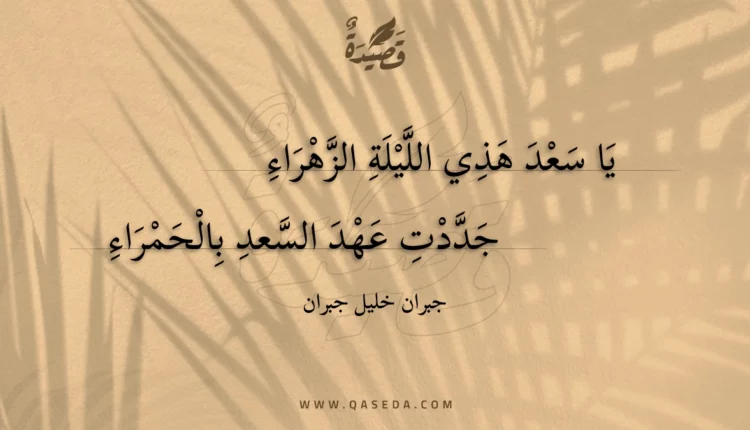 قَصِيْدَةٌ
يَا سَعْدَ هَذِي اللَّيْلَةِ الزَّهْرَاءِ
جَدَّدْتِ عَهْدَ السَّعدِ بِالْحَمْرَاءِ
جبران خليل جبران
WWW.QASEDA.COM